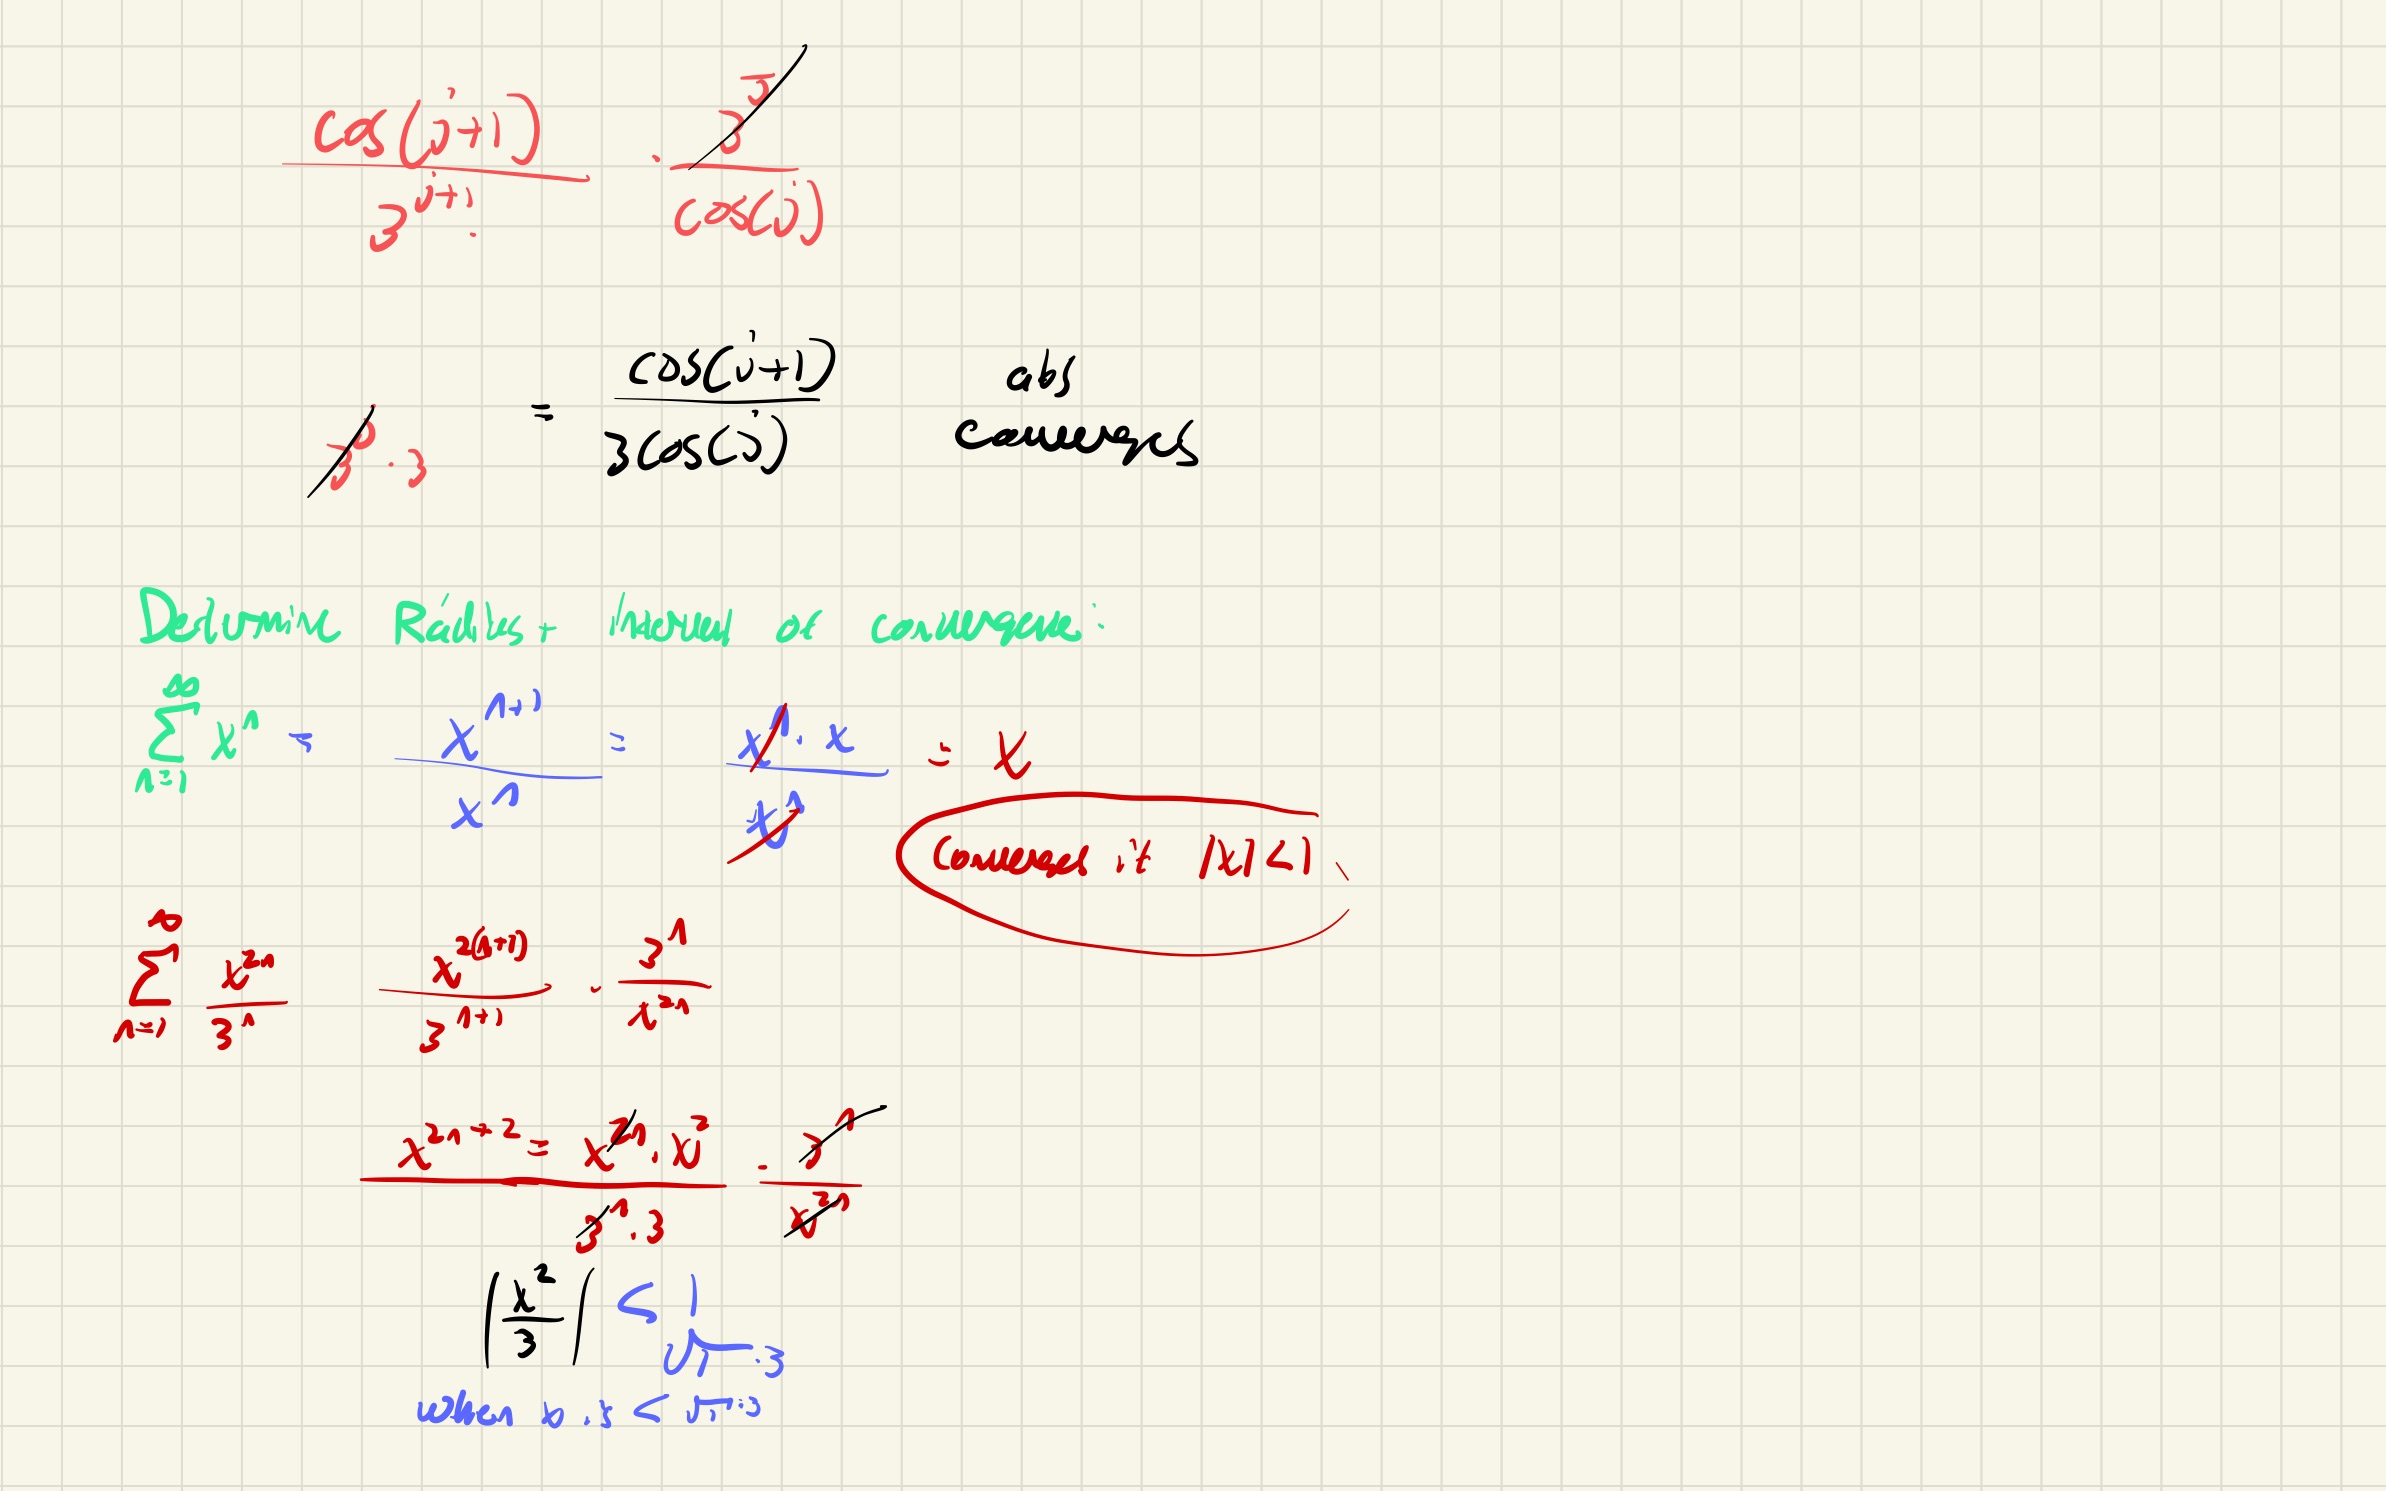 cos(j+1) / 3^(j+1) · 3^j / cos(j)
3^j · 3 = cos(j+1) / 3cos(j) abs
converges
Determine Radius + Interval of convergence:
∞
∑ x^n = x^(n+1) / x^n = x^n · x / x^n = x
n=1
Converges if |x| < 1
∞
∑ x^2n / 3^n x^2(n+1) / 3^(n+1) · 3^n / x^2n
n=1
x^(2n+2) = x^2n · x^2 / 3^n · 3 · 3^n / x^2n
|x^2 / 3| < 1
√1·3
when x is < √1·3